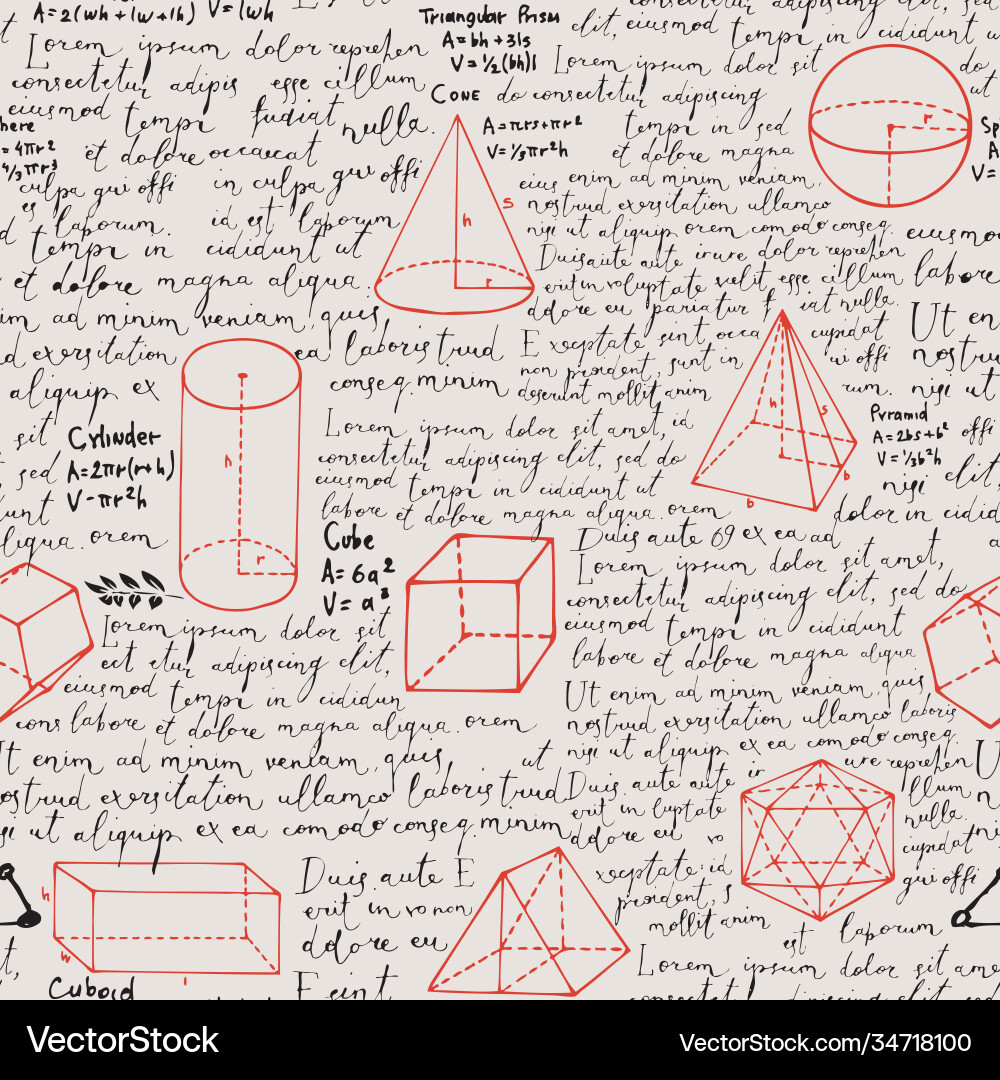 A=2(wh+lw+lh) V=lwh
Triangular Prism
A=bh+3ls
V=½(bh)l
elit, eiusmod tempr in cididunt
Lorem ipsum dolor reprehen
consectetur adipis esse cillum
eiusmod tempr fugiat nulla.
et dolore occaecat
culpa qui offi in culpa qui offi
es laborum. id est laborum
tempr in cididunt ut
et dolore magna aliqua.
im ad minim veniam, quis
d exersitation ea laboris trud
aliquip ex conseq. minim
Lorem ipsum dolor sit
Cone do consectetur adipiscing
A=πrs+πr²
V=⅓πr²h
tempr in sed
et dolore magna
eius enim ad minim veniam,
nostrud exersitation ullamco
nisi ut aliquip orem comodo conseq.
Duis aute aute irure dolor reprehen
erit in voluptate velit esse cillum
ddore eu pariatur f iat nulla.
Exceptate sint occa cupidat
non proident, sunt in ui offi
deserunt mollit anim rum.
h
s
r
r
do
ut
Sp
A
V=
here
= 4πr²
4/3πr³
eiusmo
labore
Ut en
nostru
nisi ut
Pyramid
A=2bs+b²
V=⅓b²h
offi
nisi elit,
dolor in cidid
h
s
b
b
sit
sed
unt
liqua. orem
Cylinder
A=2πr(r+h)
V-πr²h
h
r
Lorem ipsum dolor sit amet, id
consectetur adipiscing elit, sed do
eiusmod tempr in cididunt ut
labore et dolore magna aliqua. orem
Cube
A=6a²
V=a³
Duis aute 69 ex ea ad
Lorem ipsum dolor sit amet,
consectetur adipiscing elit, sed do
eiusmod tempr in cididunt
labore et dolore magna aliqua
Ut enim ad minim veniam, quis
nostrud exersitation ullamco laboris
nisi ut aliquip ex ea comodo conseq.
Duis aute aute in ure reprehen
erit in luptate
ddore eu vo
xceptate id
proident, s
mollit anim
est laborum
llum
nulla.
cupidat
qui offi
Lorem ipsum dolor sit ame
Lorem ipsum dolor sit
eit etur adipiscing elit,
eiusmod tempr in cididun
cons labore et dolore magna aliqua. orem
Ut enim ad minim veniam, quis, ut
ostrud exersitation ullamco laboris trud
si ut aliquip ex ea comodo conseq. minim
Duis aute E
erit in vo non
ddore eu
E sint
h
w
l
Cuboid
VectorStock
VectorStock.com/34718100